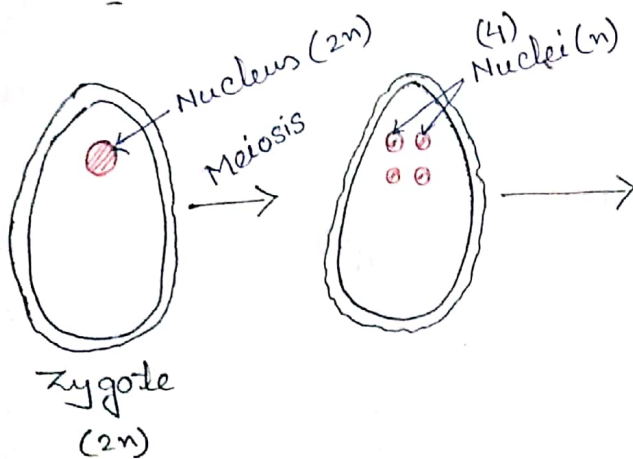 Nucleus (2n)
Meiosis
(4)
Nuclei (n)
Zygote
(2n)